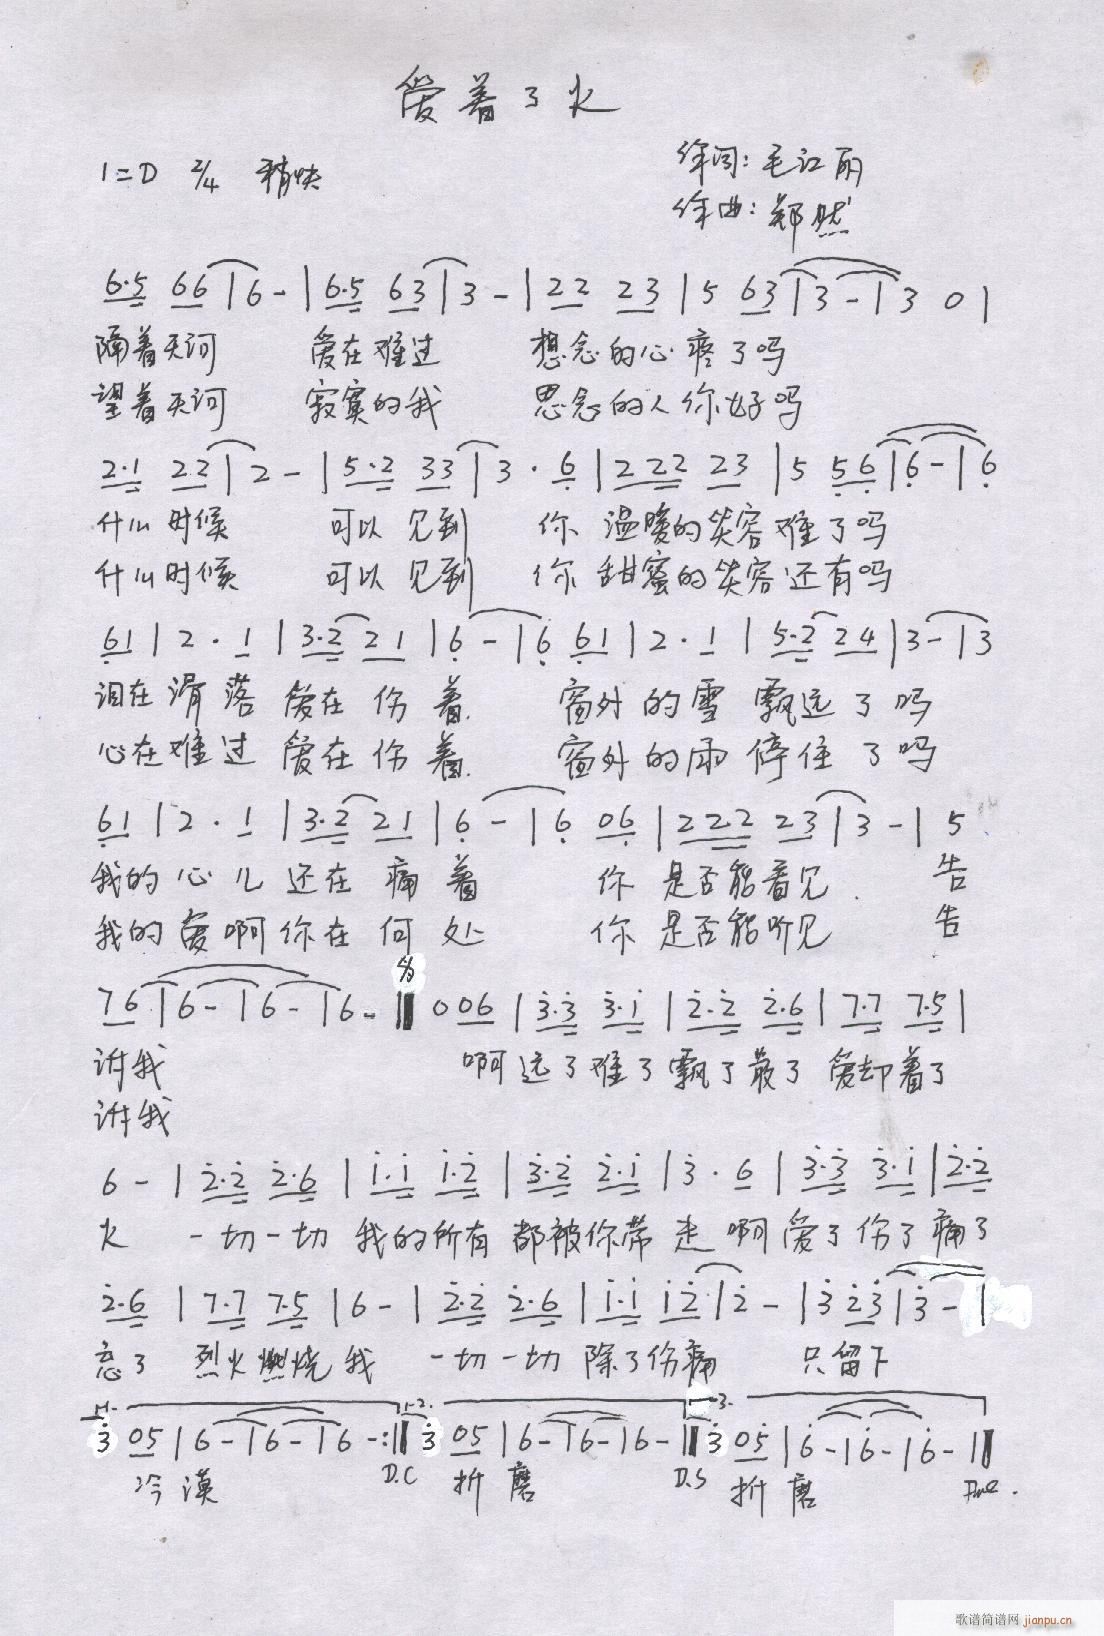 爱着了火
1=D 2/4 稍快
作词:毛江丽
作曲:郑然
6·5 66 | 6 - | 6·5 63 | 3 - | 22 23 | 5 63 | 3 - | 3 0 |
隔着天河 爱在难过 想念的心疼了吗
望着天河 寂寞的我 思念的人你好吗
2·1 22 | 2 - | 5·2 33 | 3 · 6 | 2 22 23 | 5 56 | 6 - | 6
什么时候 可以见到 你 温暖的笑容难了吗
什么时候 可以见到 你 甜蜜的笑容还有吗
61 | 2 · 1 | 3·2 21 | 6 - | 6 61 | 2 · 1 | 5·2 24 | 3 - | 3
泪在滑落 爱在伤着 窗外的雪飘远了吗
心在难过 爱在伤着 窗外的雨停住了吗
61 | 2 · 1 | 3·2 21 | 6 - | 6 06 | 22·2 23 | 3 - | 5
我的心儿还在痛着 你 是否能看见 告
我的爱啊你在何处 你 是否能听见 告
76 | 6 - | 6 - | 6 - || 0 06 | 3·3 3·1 | 2·2 2·6 | 7·7 7·5 |
诉我 啊远了难了飘了散了爱却着了
诉我
6 - | 2·2 2·6 | 1·1 1·2 | 3·2 2·1 | 3 · 6 | 3·3 3·1 | 2·2
火 一切一切 我的所有都被你带走 啊爱了伤了痛了
2·6 | 7·7 7·5 | 6 - | 2·2 2·6 | 1·1 12 | 2 - | 3 23 | 3 - |
忘了 烈火燃烧我 一切一切 除了伤痛 只留下
1-2. 3.
3 05 | 6 - | 6 - | 6 - :|| 3 05 | 6 - | 6 - | 6 - || 3 05 | 6 - | 6 - | 6 - ||
冷漠 D.C 折磨 D.S 折磨 Fine.
歌谱简谱网 jianpu.cn